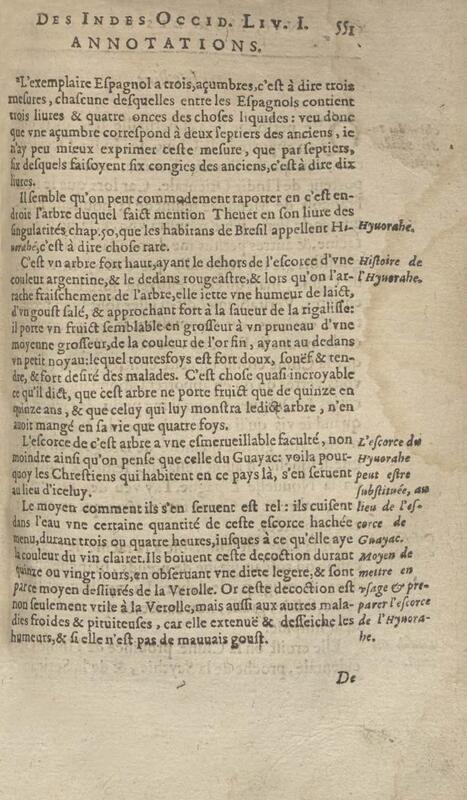 DES INDES OCCID. LIV. I. 551
ANNOTATIONS.
L'exemplaire Espagnol a trois,açumbres,c'est à dire trois
mesures, chascune desquelles entre les Espagnols contient
trois liures & quatre onces des choses liquides: veu donc
que vne açumbre correspond à deux septiers des anciens, ie
n'ay peu mieux exprimer ceste mesure, que par septiers,
six desquels faisoyent six congies des anciens,c'est à dire dix
liures.
Il semble qu'on peut commodement raporter en c'est en-
droit l'arbre duquel faict mention Theuet en son liure des
singularités, chap.50, que les habitans de Bresil appellent Hi-
uorahé,c'est à dire chose rare.
Hyuorahe.
C'est vn arbre fort haut,ayant le dehors de l'escorce d'vne
couleur argentine,& le dedans rougeastre,& lors qu'on l'ar-
rache fraischement de l'arbre,elle iette vne humeur de laict,
d'vn goust salé, & approchant fort à la saueur de la rigalisse:
il porte vn fruict semblable en grosseur à vn pruneau d'vne
moyenne grosseur,de la couleur de l'or fin, ayant au dedans
vn petit noyau:lequel toutesfoys est fort doux, souëf & ten-
dre, & fort desiré des malades. C'est chose quasi incroyable
ce qu'il dict, que cest arbre ne porte fruict que de quinze en
quinze ans, & que celuy qui luy monstra ledict arbre, n'en
auoit mangé en sa vie que quatre foys.
Histoire de
l'Hyuorahe.
L'escorce de c'est arbre a vne esmerueillable faculté, non
moindre ainsi qu'on pense que celle du Guayac: voila pour-
quoy les Chrestiens qui habitent en ce pays là, s'en seruent
au lieu d'iceluy.
L'escorce du
Hyuorahe
peut estre
substituée, au
lieu de l'es-
corce de
Guayac.
Le moyen comment ils s'en seruent est tel: ils cuisent
dans l'eau vne certaine quantité de ceste escorce hachée
menu,durant trois ou quatre heures,iusques à ce qu'elle aye
la couleur du vin clairet.Ils boiuent ceste decoction durant
quinze ou vingt iours,en obseruant vne diete legere,& sont
par ce moyen desliurés de la Verolle. Or ceste decoction est
non seulement vtile à la Verolle,mais aussi aux autres mala-
dies froides & pituiteuses, car elle extenuë & desseiche les
humeurs,& si elle n'est pas de mauuais goust.
Moyen de
mettre en
vsage & pre-
parer l'escorce
de l'Hyuora-
he.
De